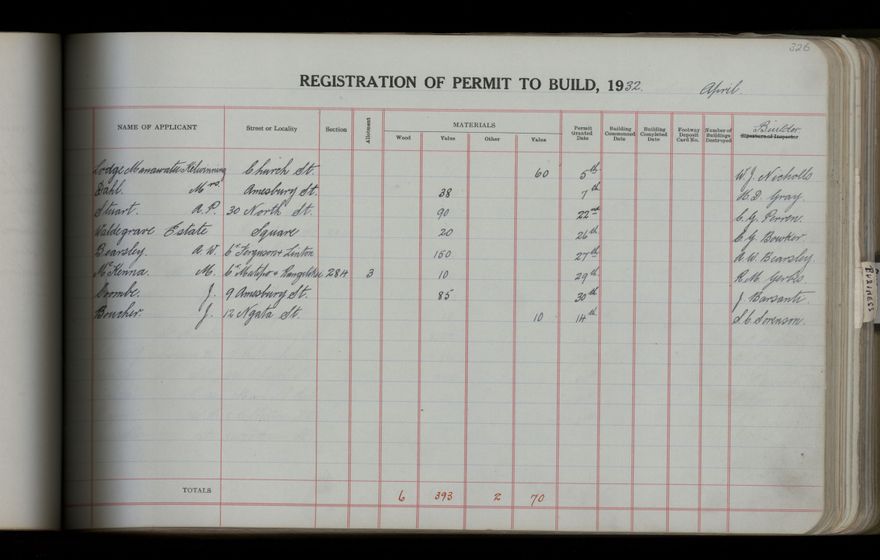 326
REGISTRATION OF PERMIT TO BUILD, 1932. April
NAME OF APPLICANT Street or Locality Section Allotment MATERIALS Permit Granted Date Building Commenced Date Building Completed Date Footway Deposit Card No. Number of Buildings Destroyed Builder Signature of Inspector
Wood Value Other Value
Lodge Manawatu Kilwinning Church St. 60 5th W. J. Nicholls
Dahl. Mrs. Amesbury St. 38 7th Gray.
Stuart. A. P. 30 North St. 90 22nd C. G. Perren.
Waldegrave Estate Square 20 26th E. G. Bowker.
Bearsley. A. W. Cr Ferguson & Linton 150 27th A. W. Bearsley.
McKenna. M. Cr Matipo & 284 3 10 29th R. M.
Coombe. J. 9 Amesbury St. 85 30th J. Barsanti.
Boucher. J. 12 Ngata St. 10 14th S. C. Sorenson.
TOTALS 6 393 2 70
BUSINESS